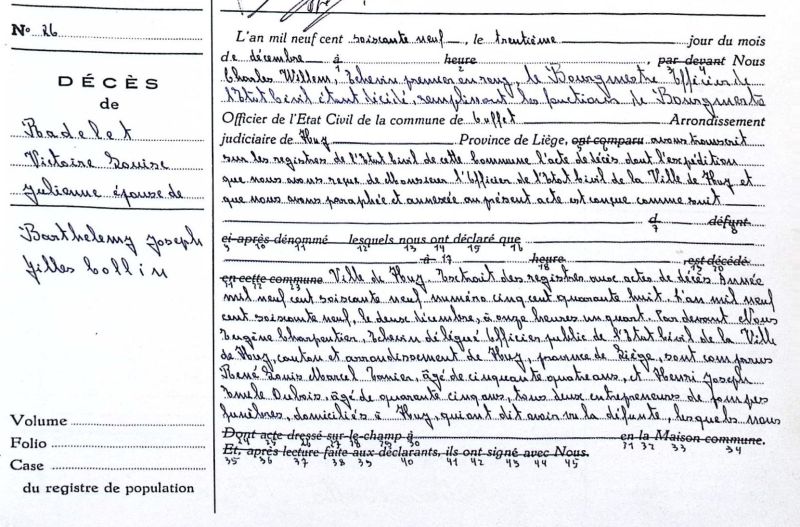 No 26
DÉCÈS
de
Radelet
Victoire Louise
Julienne épouse de
Barthelemy Joseph
Gilles Collin
Volume
Folio
Case
du registre de population
L'an mil neuf cent soixante neuf, le trentième jour du mois
de décembre à heure, par devant Nous
1 2 3 4
Charles Willem, Echevin premier en rang, le Bourgmestre Officier de
l'Etat Civil étant décédé, remplissant les fonctions de Bourgmestre
Officier de l'Etat Civil de la commune de Arrondissement
judiciaire de Huy Province de Liège, ont comparu avons transcrit
sur les registres de l'Etat Civil de cette Commune l'acte de décès dont l'expédition
que nous avons reçue de Monsieur l'Officier de l'Etat Civil de la Ville de Huy et
que nous avons paraphée et annexée au présent acte est conçue comme suit
d défunt
7 8
ci-après dénommé lesquels nous ont déclaré que
9 10 11 12 13 14 15 16
à 17 heure est décédé
18 19 20
en cette commune Ville de Huy. Extrait des registres aux actes de décès Année
21 22 23
mil neuf cent soixante neuf numéro cinq cent quarante huit. L'an mil neuf
cent soixante neuf, le deux décembre, à onze heures un quart. Par devant Nous
Eugène Charpentier, Echevin délégué Officier public de l'Etat Civil de la Ville
de Huy, canton et arrondissement de Huy, province de Liège, sont comparus
René Louis Marcel, âgé de cinquante quatre ans, et Henri Joseph
Emile Dubois, âgé de quarante cinq ans, tous deux entrepreneurs de pompes
funèbres, domiciliés à Huy, qui ont dit avoir vu la défunte, lesquels nous
Dont acte dressé sur-le-champ à en la Maison commune.
26 27 28 29 30 31 32 33 34
Et, après lecture faite aux déclarants, ils ont signé avec Nous.
35 36 37 38 39 40 41 42 43 44 45